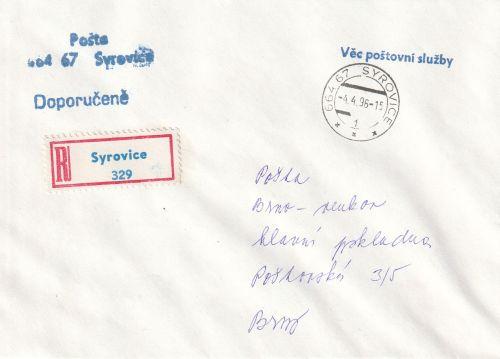 Pošta
664 67 Syrovice
Věc poštovní služby
Doporučeně
664 67 SYROVICE
-4.4.96-15
1
* * *
R
Syrovice
329
Pošta
Brno-venkov
hlavní pokladna
Poštovská 3/5
Brno